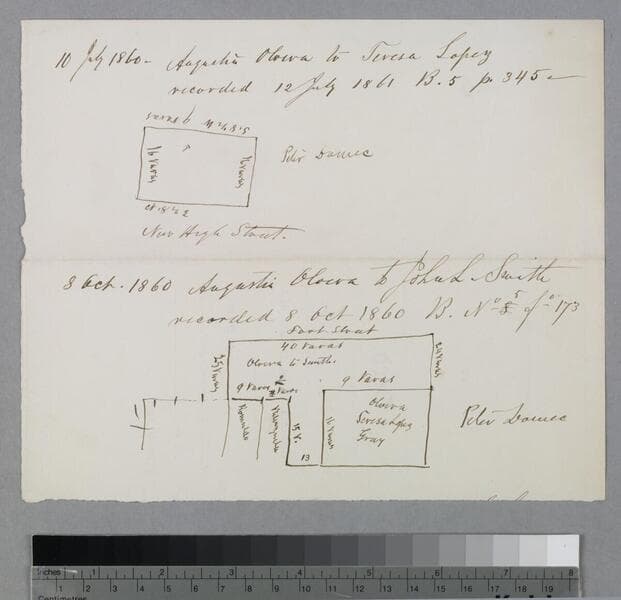 10 July 1860 - Augustin Olvera to Teresa Lopez
recorded 12 July 1861 B. 5 p. 345
9 varas
16 varas
16 varas
Peter Domec
New High Street.
8 Oct. 1860 Augustin Olvera to John L. Smith
recorded 8 Oct 1860 B. No 5 fo 173
Fort Street
40 Varas
Olvera to Smith.
9 Varas
Varas
9 Varas
16 Varas
15 V.
13
Olvera
Teresa Lopez
Gray
Peter Domec
Inches 1 2 3 4 5 6 7 8
1 2 3 4 5 6 7 8 9 10 11 12 13 14 15 16 17 18 19
Centimetres